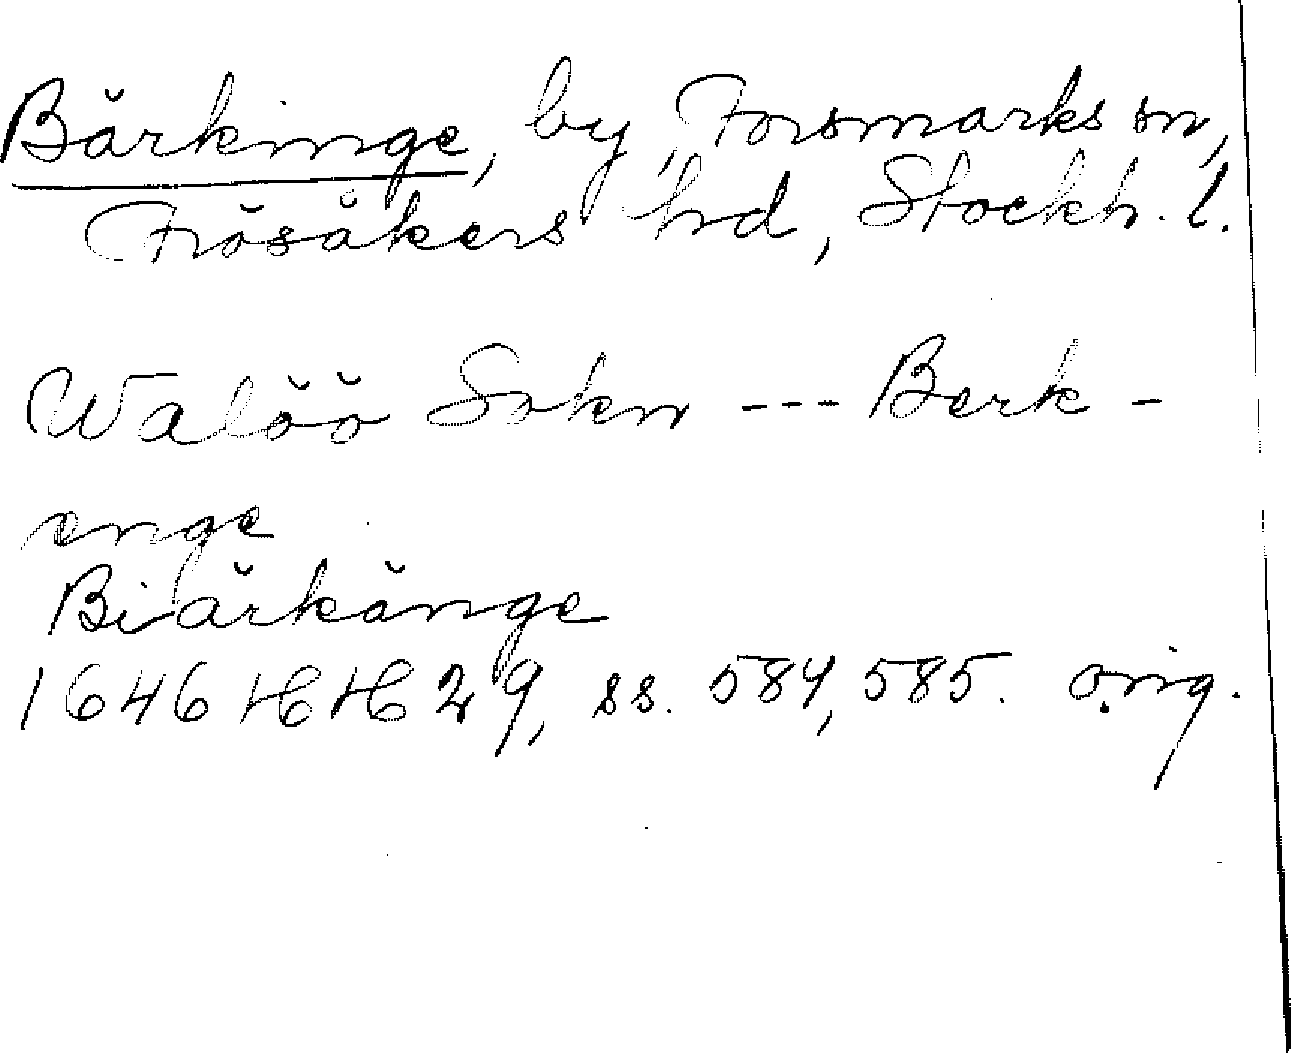 Bärkinge, by, Forsmarks sn,
Frösåkers hd, Stockh. l.
Walöö Sokn --- Berk -
enge
Biärkänge
1646 HH 29, ss. 584, 585. orig.